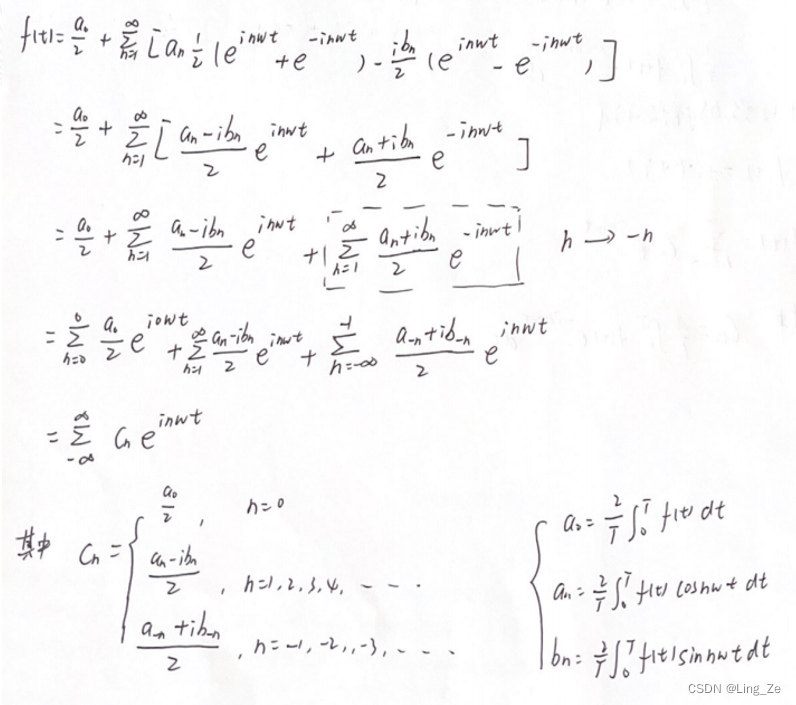 f(t)=a₀/2 + ∑_{n=1}^{∞} [an 1/2 (e^{inwt} + e^{-inwt}) - ibn/2 (e^{inwt} - e^{-inwt})]
= a₀/2 + ∑_{n=1}^{∞} [(an-ibn)/2 e^{inwt} + (an+ibn)/2 e^{-inwt}]
= a₀/2 + ∑_{n=1}^{∞} (an-ibn)/2 e^{inwt} + ∑_{n=1}^{∞} (an+ibn)/2 e^{-inwt} n → -n
= ∑_{n=0}^{0} a₀/2 e^{i0wt} + ∑_{n=1}^{∞} (an-ibn)/2 e^{inwt} + ∑_{n=-∞}^{-1} (a_{-n}+ib_{-n})/2 e^{inwt}
= ∑_{-∞}^{∞} Cn e^{inwt}
其中 Cn = {
a₀/2 , n=0
(an-ibn)/2 , n=1,2,3,4, - - -
(a_{-n}+ib_{-n})/2 , n=-1,-2,,-3, - - -
{ a₀ = 2/T ∫₀^T f(t) dt
an = 2/T ∫₀^T f(t) cosnwt dt
bn = 2/T ∫₀^T f(t) sinnwt dt
CSDN @Ling_Ze